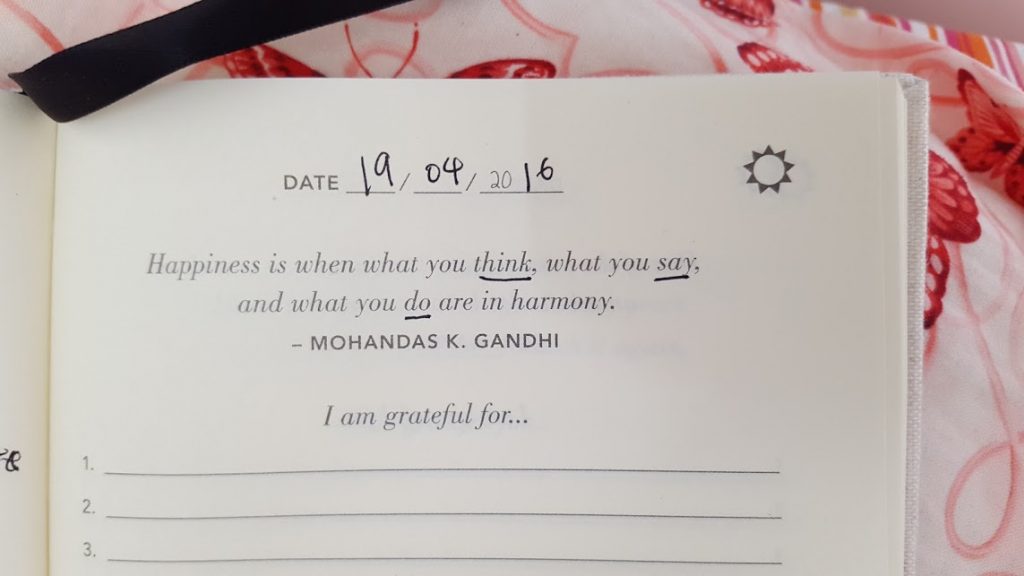 DATE 19/04/2016
Happiness is when what you think, what you say,
and what you do are in harmony.
– MOHANDAS K. GANDHI
I am grateful for...
1.
2.
3.